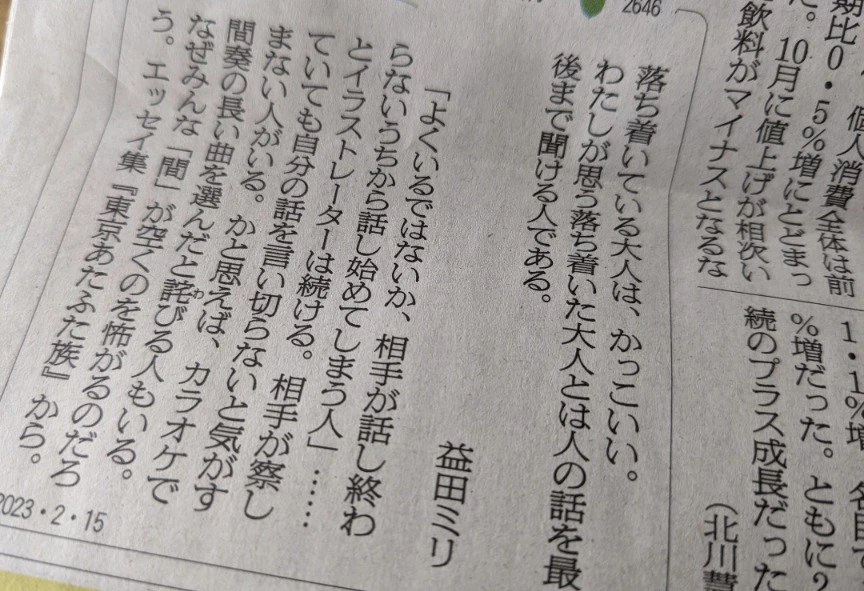 2646
落ち着いている大人は、かっこいい。
わたしが思う落ち着いた大人とは人の話を最
後まで聞ける人である。
益田ミリ
「よくいるではないか、相手が話し終わ
らないうちから話し始めてしまう人」……
とイラストレーターは続ける。相手が察し
ていても自分の話を言い切らないと気がす
まない人がいる。かと思えば、カラオケで
間奏の長い曲を選んだと詫びる人もいる。
なぜみんな「間」が空くのを怖がるのだろ
う。エッセイ集『東京あたふた族』から。
2023・2・15
期比0・5%増にとどまっ
た。10月に値上げが相次い
飲料がマイナスとなるな
個人消費全体は前
1・1%増
%増だった。ともに2
続のプラス成長だった
(北川慧